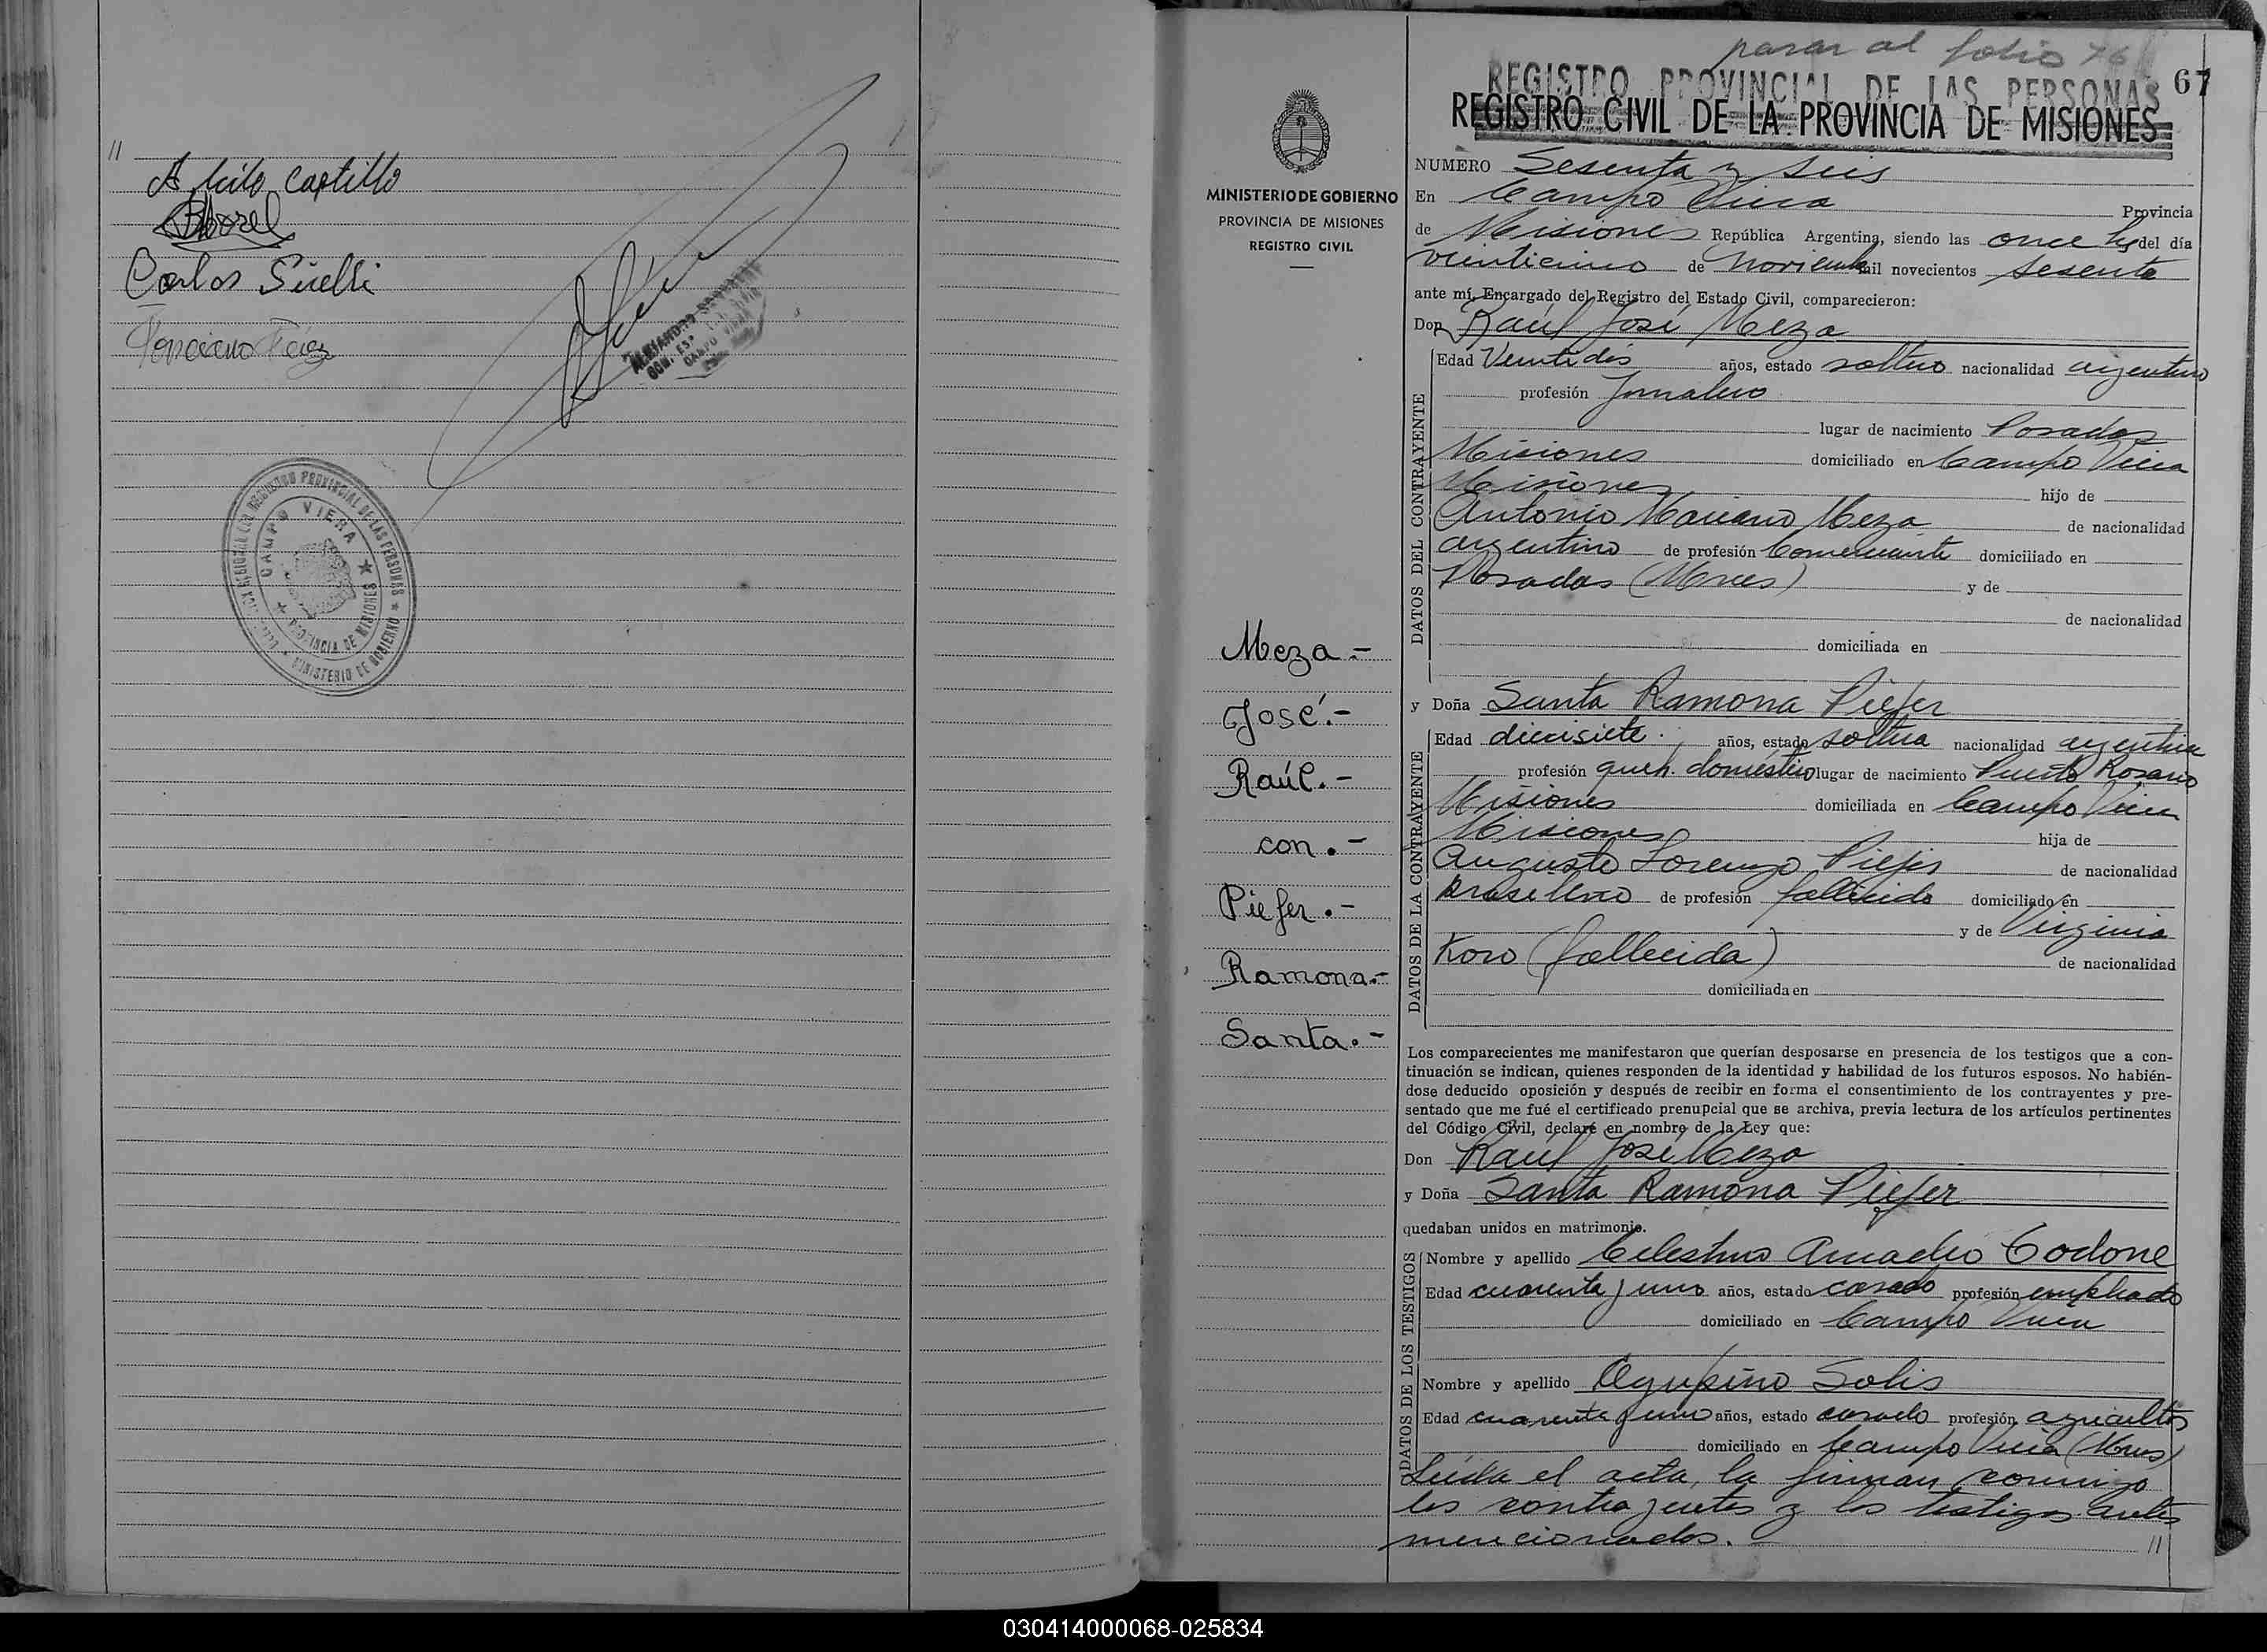 //
A
Castillo
Borel
Carlos
CAMPO VIERA
PROVINCIA DE MISIONES
MINISTERIO DE GOBIERNO
pasar al folio 76
67
REGISTRO PROVINCIAL DE LAS PERSONAS
REGISTRO CIVIL DE LA PROVINCIA DE MISIONES
MINISTERIO DE GOBIERNO
PROVINCIA DE MISIONES
REGISTRO CIVIL
Meza.-
José.-
Raúl.-
con.-
Piefer.-
Ramona.-
Santa.-
NUMERO Sesenta y seis
En Campo Viera Provincia
de Misiones República Argentina, siendo las once hs del día
veinticinco de Noviembre mil novecientos sesenta
ante mí, Encargado del Registro del Estado Civil, comparecieron:
Don Raúl José Meza
DATOS DEL CONTRAYENTE
Edad Veintidós años, estado soltero nacionalidad argentino
profesión Jornalero
lugar de nacimiento Posadas
Misiones domiciliado en Campo Viera
Misiones hijo de
Antonio Mariano Meza de nacionalidad
argentino de profesión Comerciante domiciliado en
Posadas (Mnes) y de
de nacionalidad
domiciliada en
y Doña Santa Ramona Piefer
DATOS DE LA CONTRAYENTE
Edad diecisiete años, estado soltera nacionalidad argentina
profesión queh. doméstico lugar de nacimiento Puerto Rosario
Misiones domiciliada en Campo Viera
Misiones hija de
Augusto Lorenzo Piefer de nacionalidad
brasilero de profesión fallecido domiciliado en
y de Virginia
Koro (fallecida) de nacionalidad
domiciliada en
Los comparecientes me manifestaron que querían desposarse en presencia de los testigos que a con-
tinuación se indican, quienes responden de la identidad y habilidad de los futuros esposos. No habién-
dose deducido oposición y después de recibir en forma el consentimiento de los contrayentes y pre-
sentado que me fué el certificado prenupcial que se archiva, previa lectura de los artículos pertinentes
del Código Civil, declaré en nombre de la Ley que:
Don Raúl José Meza
y Doña Santa Ramona Piefer
quedaban unidos en matrimonio.
DATOS DE LOS TESTIGOS
Nombre y apellido Celestino Amadeo Codone
Edad cuarenta y uno años, estado casado profesión empleado
domiciliado en Campo Viera
Nombre y apellido Agripino Solis
Edad cuarenta y uno años, estado casado profesión agricultor
domiciliado en Campo Viera (Mnes)
Leída el acta, la firman conmigo
los contrayentes y los testigos antes
mencionados. //
030414000068-025834